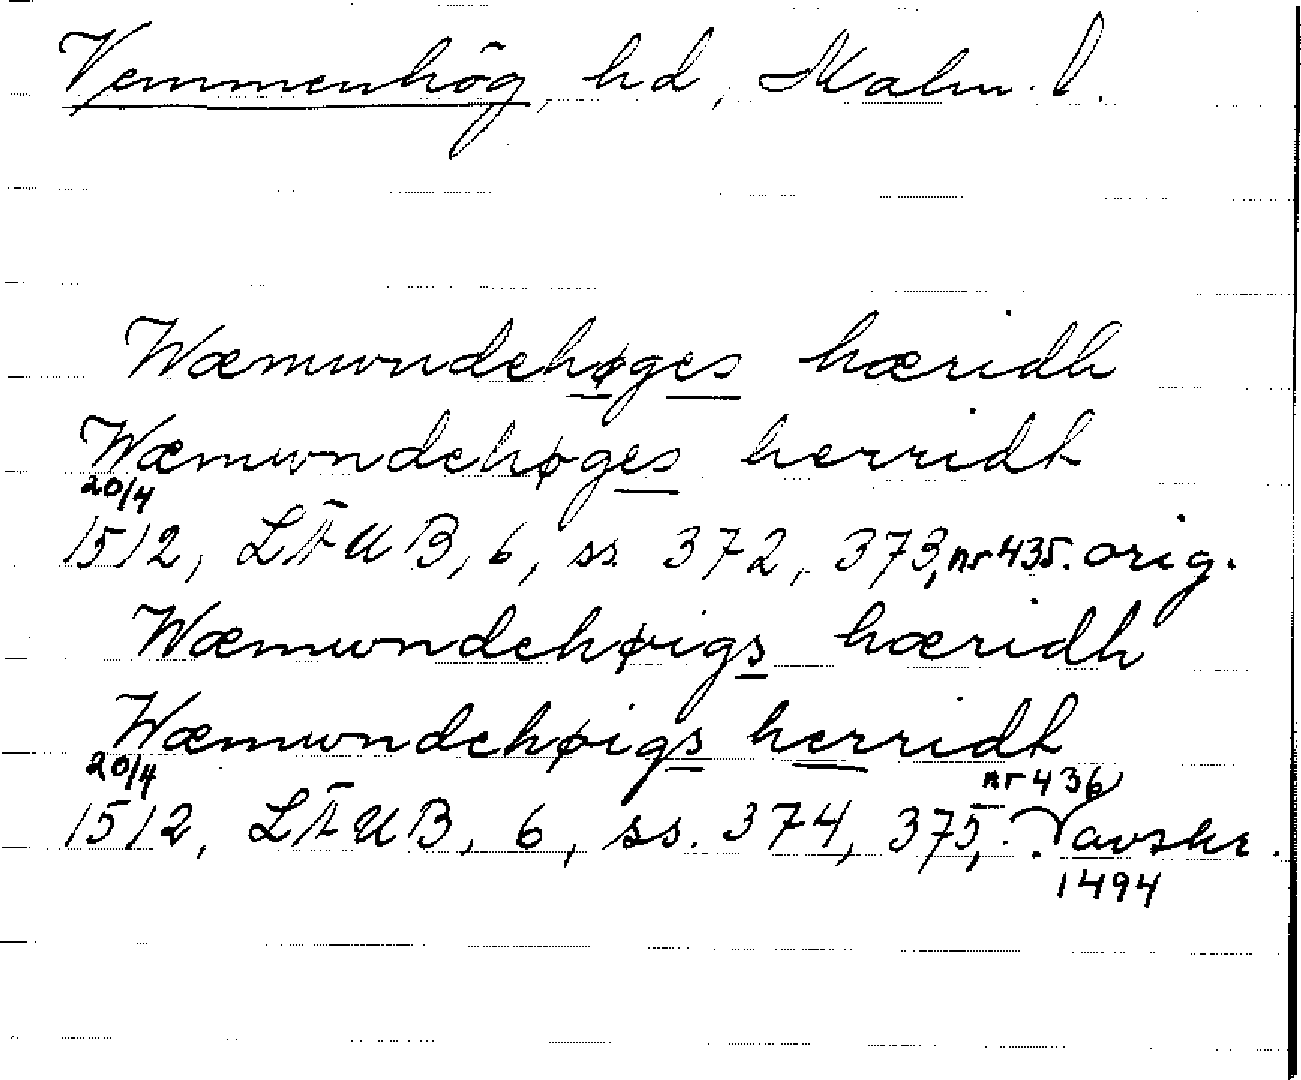 Vemmenhög, hd, Malm. l.
Wæmwndehøges hæridh
Wæmwndehøges herridh
20/4
1512, LÄUB, 6, ss. 372, 373, nr 435. orig.
Wæmwndehøigs hæridh
Wæmwndehøigs herridh
20/4
nr 436
1512, LÄUB, 6, ss. 374, 375, avskr.
1494